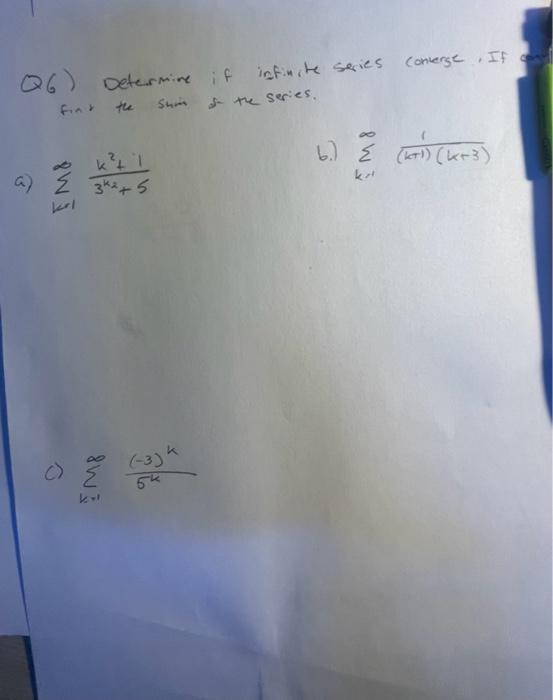 Q6) Determine if infinite series converge. If
find the sum of the series.
a) ∞ Σ k=1 k²+1 / 3k²+5
b.) ∞ Σ k=1 1 / (k+1)(k+3)
c) ∞ Σ k=1 (-3)^k / 5^k